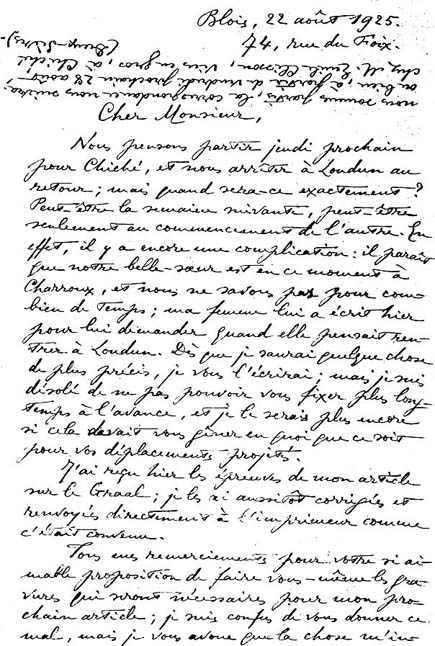 Blois, 22 août 1925.
74, rue du Foix.
nous sommes partis, la correspondance nous suivra;
ou bien, à partir de vendredi prochain 28 août
chez M. Émile Clisson, Vins en gros, à Chiché
(Deux-Sèvres).
Cher Monsieur,
Nous pensons partir jeudi prochain
pour Chiché, et nous arrêter à Loudun au
retour; mais quand sera-ce exactement?
Peut-être la semaine suivante, peut-être
seulement au commencement de l'autre. En
effet, il y a encore une complication: il paraît
que notre belle-sœur est en ce moment à
Charroux, et nous ne savons pas pour com-
bien de temps; ma femme lui a écrit hier
pour lui demander quand elle pensait ren-
trer à Loudun. Dès que je saurai quelque chose
de plus précis, je vous l'écrirai; mais je suis
désolé de ne pas pouvoir vous fixer plus long-
temps à l'avance, et je le serais plus encore
si cela devait vous gêner en quoi que ce soit
pour vos déplacements projetés.
J'ai reçu hier les épreuves de mon article
sur le Graal; je les ai aussitôt corrigées et
renvoyées directement à l'imprimeur comme
c'était convenu.
Tous mes remerciements pour votre si ai-
mable proposition de faire vous-même les gra-
vures qui seront nécessaires pour mon pro-
chain article; je suis confus de vous donner ce
mal, mais je vous avoue que la chose m'in-